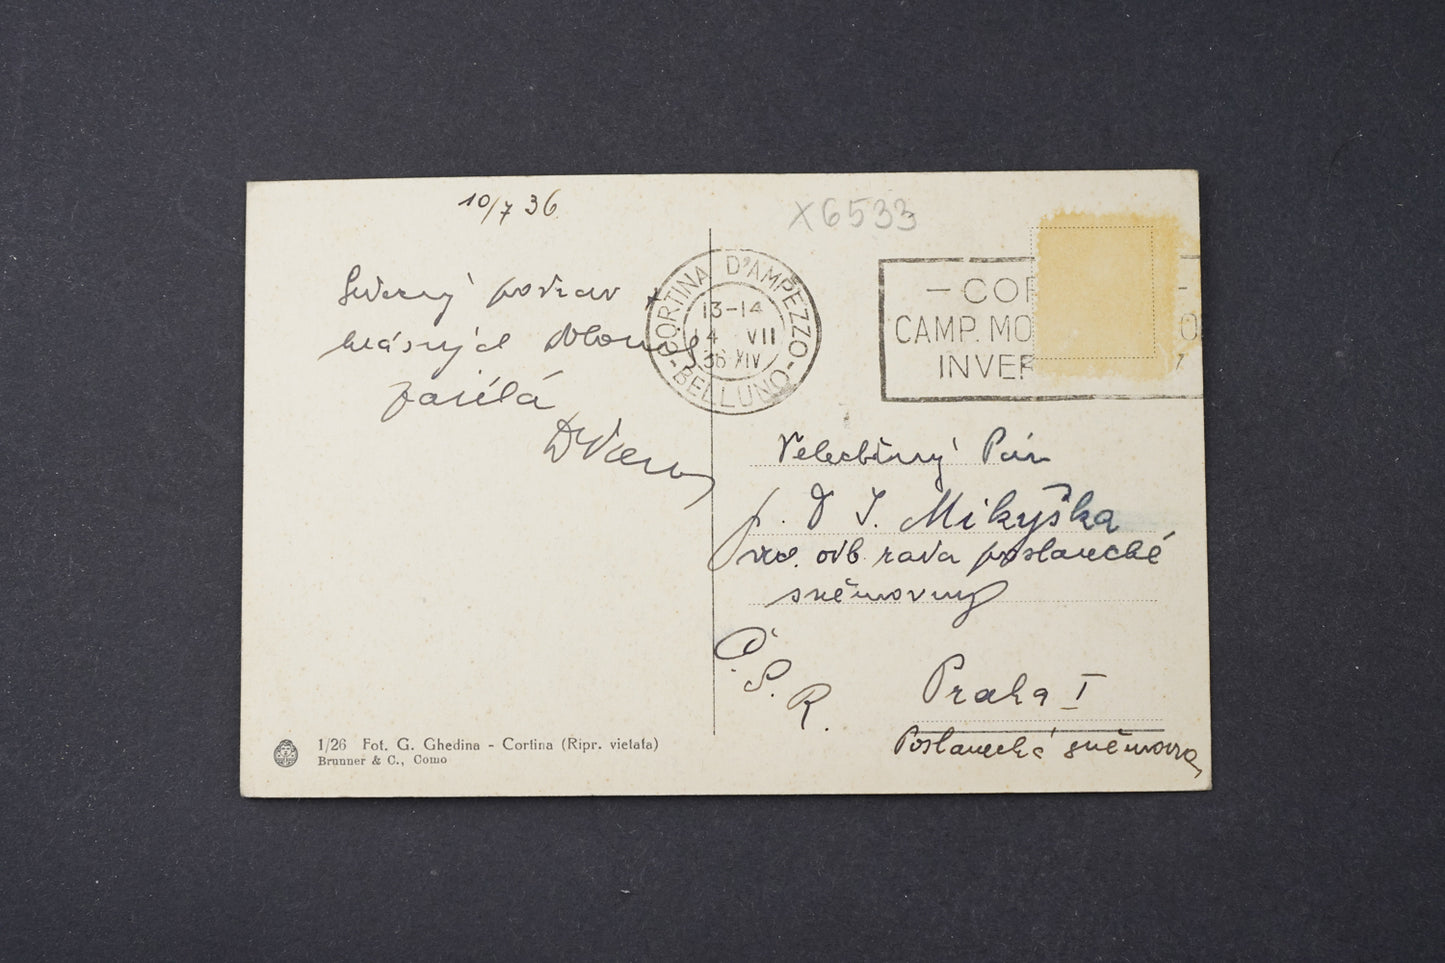 10/7 36
X6533
Srdečný pozdrav z
krásných Dolomit
zasílá
CORTINA D'AMPEZZO
13-14
14 VII
36 XIV
-BELLUNO-
- COR
CAMP. MO
INVER
Velectěný Pán
p. D J. Mikyška
vrch. odb. rada poslanecké
sněmovny
Č.S.R.
Praha I
Poslanecká sněmovna
1/26 Fot. G. Ghedina - Cortina (Ripr. vietata)
Brunner & C., Como